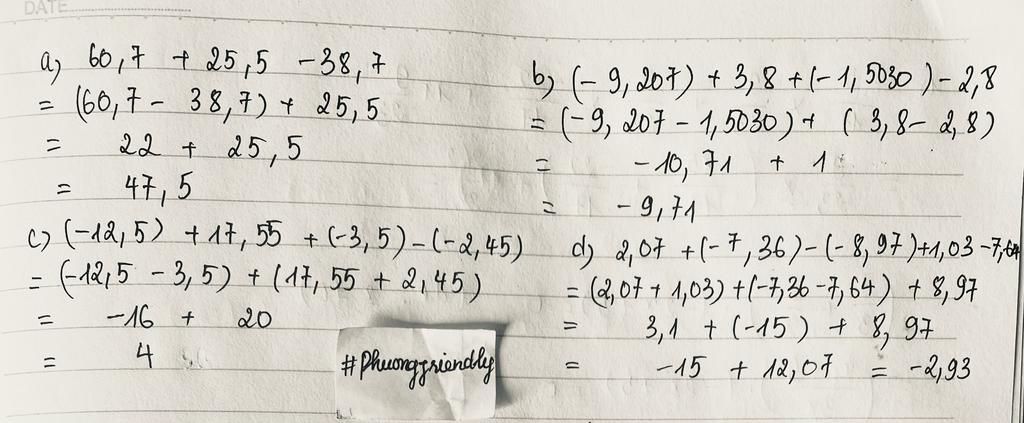 DATE
a) 60,7 + 25,5 - 38,7
= (60,7 - 38,7) + 25,5
= 22 + 25,5
= 47,5
b) (- 9,207) + 3,8 + (- 1,5030) - 2,8
= (-9,207 - 1,5030) + (3,8 - 2,8)
= -10,71 + 1
= -9,71
c) (-12,5) + 17,55 + (-3,5) - (-2,45)
= (-12,5 - 3,5) + (17,55 + 2,45)
= -16 + 20
= 4
d) 2,07 + (-7,36) - (-8,97) + 1,03 - 7,64
= (2,07 + 1,03) + (-7,36 - 7,64) + 8,97
= 3,1 + (-15) + 8,97
= -15 + 12,07 = -2,93
#Phuongfriendly